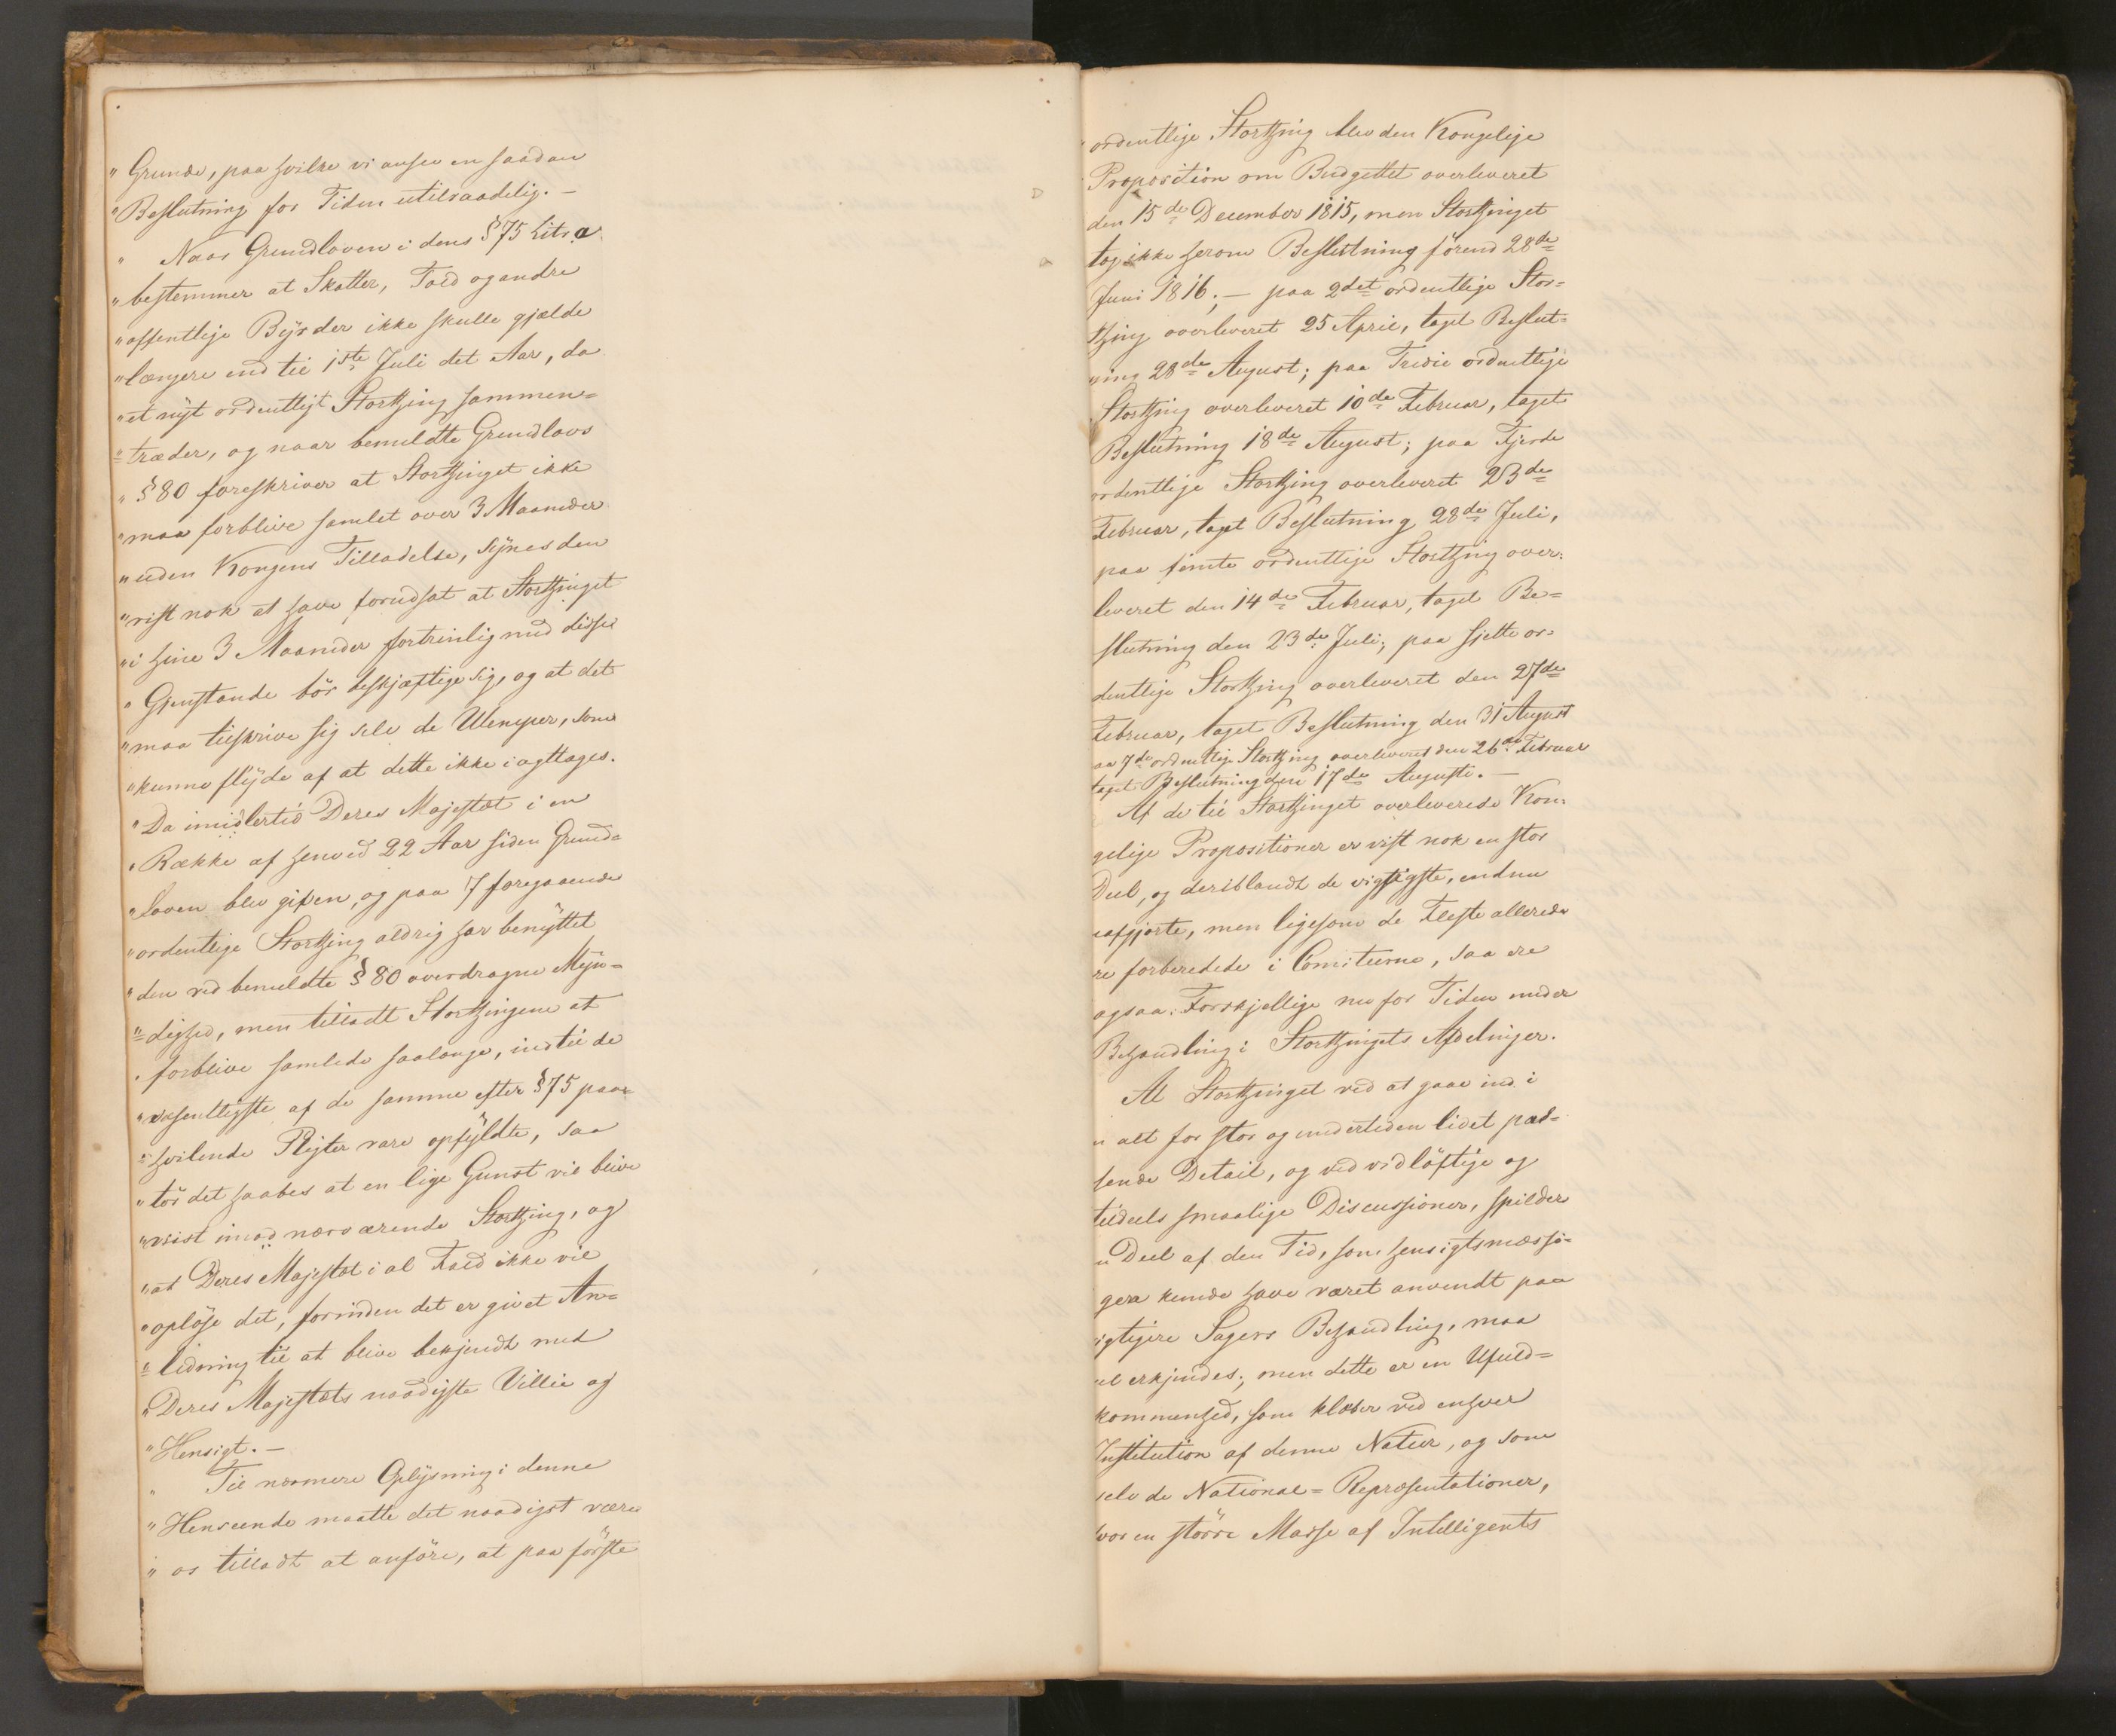 " Grunde, paa hvilke vi ansee en saadan
" Beslutning for Tiden utilraadelig. —
" Naar Grundloven i dens § 75 Litr. a
" bestemmer at Skatter, Told og andre
" offentlige Byrder ikke skulle gjælde
" længere end til 1ste Juli det Aar, da
" et nyt ordentligt Storthing sammen=
" træder, og naar bemeldte Grundlovs
" § 80 foreskriver at Storthinget ikke
" maa forblive samlet over 3 Maaneder
" uden Kongens Tilladelse, synes den
" vist nok at have forudsat at Storthinget
" i hine 3 Maaneder fortrinlig med disse
" Gjenstande bör beskjæftige sig, og at det
" maa tilskrive sig selv de Ulemper, som
" kunne flyde af at dette ikke iagttages.
" Da imidlertid Deres Majestæt i en
" Række af henved 22 Aar siden Grund=
" loven blev given, og paa 7 foregaaende
" ordentlige Storthing aldrig har benyttet
" den ved bemeldte § 80 overdragne Myn=
" dighed, men tilladt Storthingene at
" forblive samlede saalænge, indtil de
" væsentligste af de samme efter § 75 paa=
" hvilende Pligter vare opfyldte, saa
" tör det haabes at en lige Gunst vil blive
" viist imod nærværende Storthing, og
" at Deres Majestæt i al Fald ikke vil
" oplöse det, forinden det er givet An=
" ledning til at blive bekjendt med
" Deres Majestæts naadigste Villie og
" Hensigt. —
" Til nærmere Oplysning i denne
" Henseende maatte det naadigst være
" os tilladt at anföre, at paa förste
" ordentlige Storthing blev den Kongelige
Proposition om Budgettet overleveret
den 15de December 1815, men Storthinget
tog ikke herom Beslutning förend 28de
Juni 1816; — paa 2det ordentlige Stor=
thing overleveret 25 April, taget Beslut=
ning 28de August; paa Tredie ordentlige
Storthing overleveret 10de Februar, taget
Beslutning 18de August; paa Fjerde
ordentlige Storthing overleveret 23de
Februar, taget Beslutning 28de Juli,
paa femte ordentlige Storthing over=
leveret den 14de Februar, taget Be=
slutning den 23de Juli; paa sjette or=
dentlige Storthing overleveret den 27de
Februar, taget Beslutning den 31 August
aa 7de ordentlige Storthing overleveret den 26de Februar
taget Beslutning den 17de August. —
Af de til Storthinget overleverede Kon=
gelige Propositioner er vist nok en stor
Deel, og deriblandt de vigtigste, endnu
uafgjorte, men ligesom de Fleste allerede
re forberedede i Comiteerne, saa ere
ogsaa Forskjellige nu for Tiden under
Behandling i Storthingets Afdelinger.
At Storthinget ved at gaae ind i
n alt for stor og undertiden lidet pas=
sende Detail, og ved vidlöftige og
tildeels smaalige Discussioner, spilder
n Deel af den Tid, som hensigtsmæssi=
gere kunde have været anvendt paa
igtigere Sagers Behandling, maa
el erkjendes; men dette er en Ufuld=
kommenhed, som klæber ved enhver
Institution af denne Natur, og som
selv de National=Repræsentationer,
hvor en större Masse af Intelligents